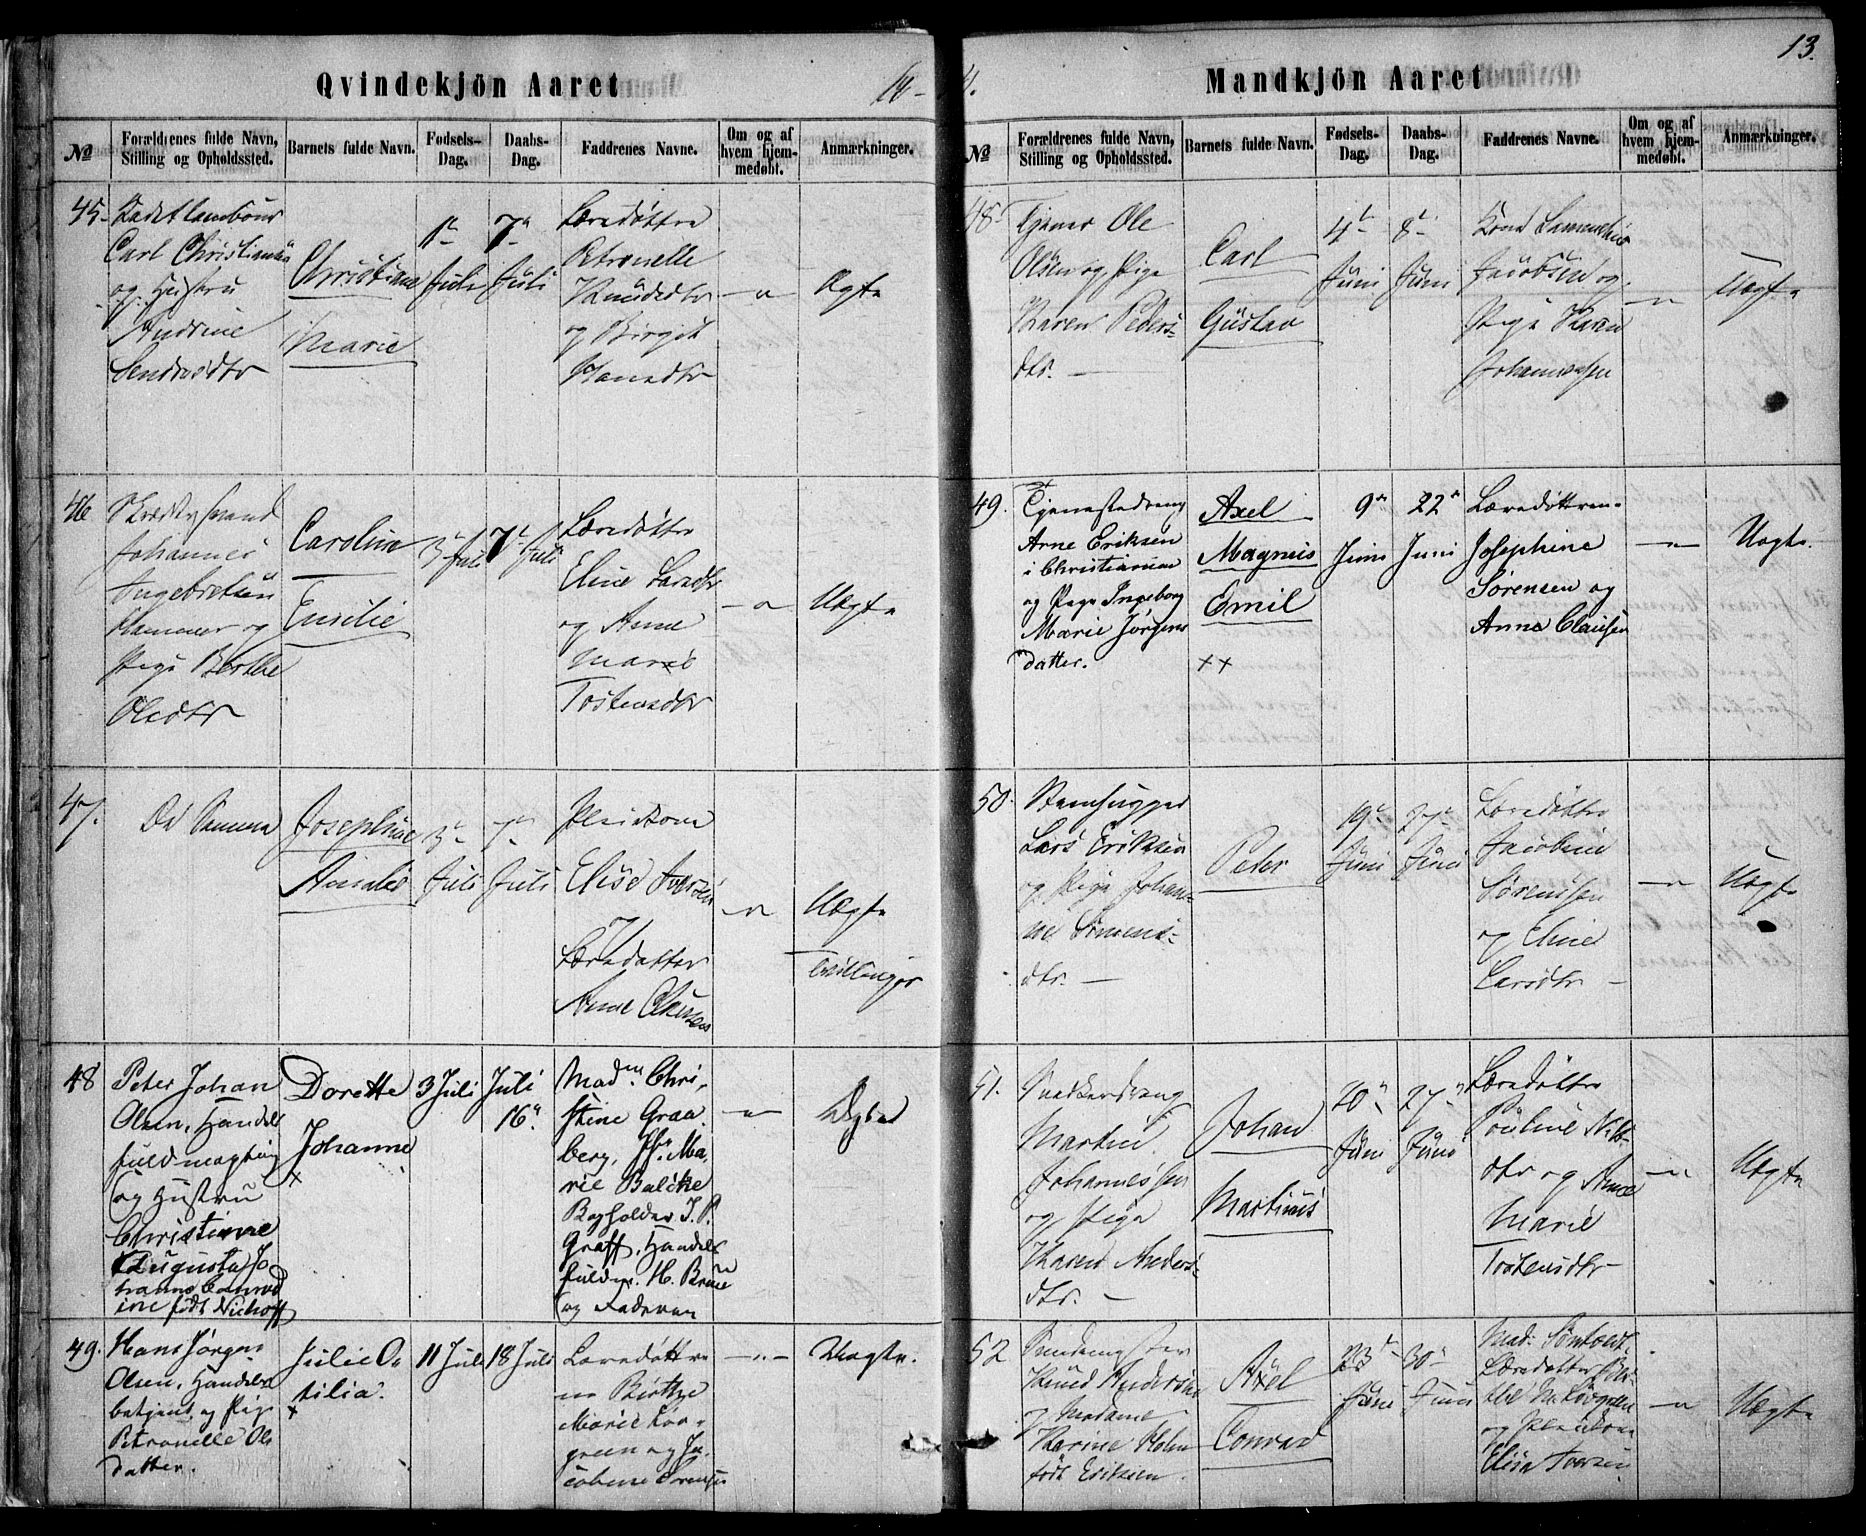 Qvindekjön Aaret
№
Forældrenes fulde Navn,
Stilling og Opholdssted.
Barnets fulde Navn.
Fødsels-
Dag.
Daabs-
Dag.
Faddrenes Navne.
Om og af
hvem hjem-
medøbt.
Anmærkninger.
45.
Carl Christiansen
og Hustru
Andrine
Christiane
Marie
1
Juli
7
Juli
Læredøttre
Petronelle
Knudsdtr
og Birgit
Hansdtr
Ægte
46
Johannes
Ingebretsen
Hammer og
Pige Berthe
Olsdtr
Caroline
Emilie
3 Juli
7 Juli
Læredøttre
Eline Larsdtr
og Anne
Marie
Tostensdtr
Uægte
47.
De Samme
Josephine
Amalie
3
Juli
7
Juli
Pleiekone
Elise Iversen
og
Læredatter
Anne Clausen
Uægte
Tvillinger
48
Peter Johan
Olsen, Handels
fuldmægtig
og Hustru
Christiane
Augusta Jo
hanne Conrad
ine født Niehoff
Dorette
Johanne
×
3 Juli
Juli
16
Mad. Chri,
stine Graa
berg, Ma,
rie Balcke
Bogholder J. P.
Graff, Handels
fuldm. H.
og Faderen
Ægte
49.
Hans Jørgen
Olsen, Handels
betjent og Pige
Petronelle Ols
datter.
Julie O
tilia.
×
11 Juli
18 Juli
Læredøttre
Marie Løv
green og Ja
cobine Sørensen
Uægte.
13.
Mandkjön Aaret
№
Forældrenes fulde Navn,
Stilling og Opholdssted.
Barnets fulde Navn.
Fødsels-
Dag.
Daabs-
Dag.
Faddrenes Navne.
Om og af
hvem hjem-
medøbt.
Anmærkninger.
48
Tjener Ole
Olsen og Pige
Karen Peders-
dtr.
Carl
Gustav
4
Juni
8
Juni
Kone
Jacobsen og
Pige Karen
Johannessen
Uægte
49.
Tjenestedreng
Arne Eriksen
i Christiania
og Pige Ingeborg
Marie Jørgens
datter.
Axel
Magnus
Emil
××
9
Juni
22
Juni
Læredøttren
Josephine
Sørensen og
Anne Clausen
Uægte.
50.
Stenhugger
Lars Eriksen
og Pige Johan-
ne Simens-
dtr.
Peter
19
Juni
27
Juni
Læredøttre
Jacobine
Sørensen
og Eline
Larsdtr
Uægte
51.
Snedkerdreng
Martin
Johannessen
og Pige
Karen Anders-
dtr.
Johan
Martinus
20
Juni
27
Juni
Læredøttre
Pouline Nils-
dtr og Anne
Marie
Tostensdtr
Uægte
52
Knud Andersen
og Madame
Karine Holm
født Eriksen.
Axel
Conrad
23
Juni
30
Juni
Mad.
Læredøttre
og Pleiekone
Elise Iversen
Uægte